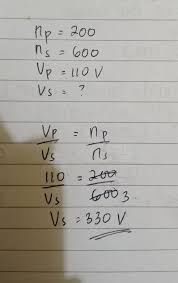 np = 200
ns = 600
Vp = 110 V
Vs = ?
Vp/Vs = np/ns
110/Vs = 200/600 3
Vs = 330 V